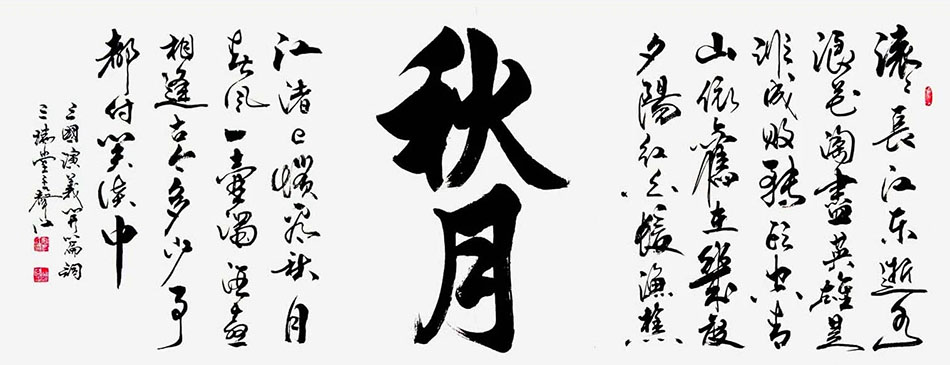 滚々長江东逝水
浪花淘盡英雄是
非成败转头空青
山依舊在幾度
夕陽红白髮渔樵
秋月
江渚上惯看秋月
春风一壶浊酒喜
相逢古今多少事
都付笑谈中
三國演義开篇詞
三瑞堂主聲江